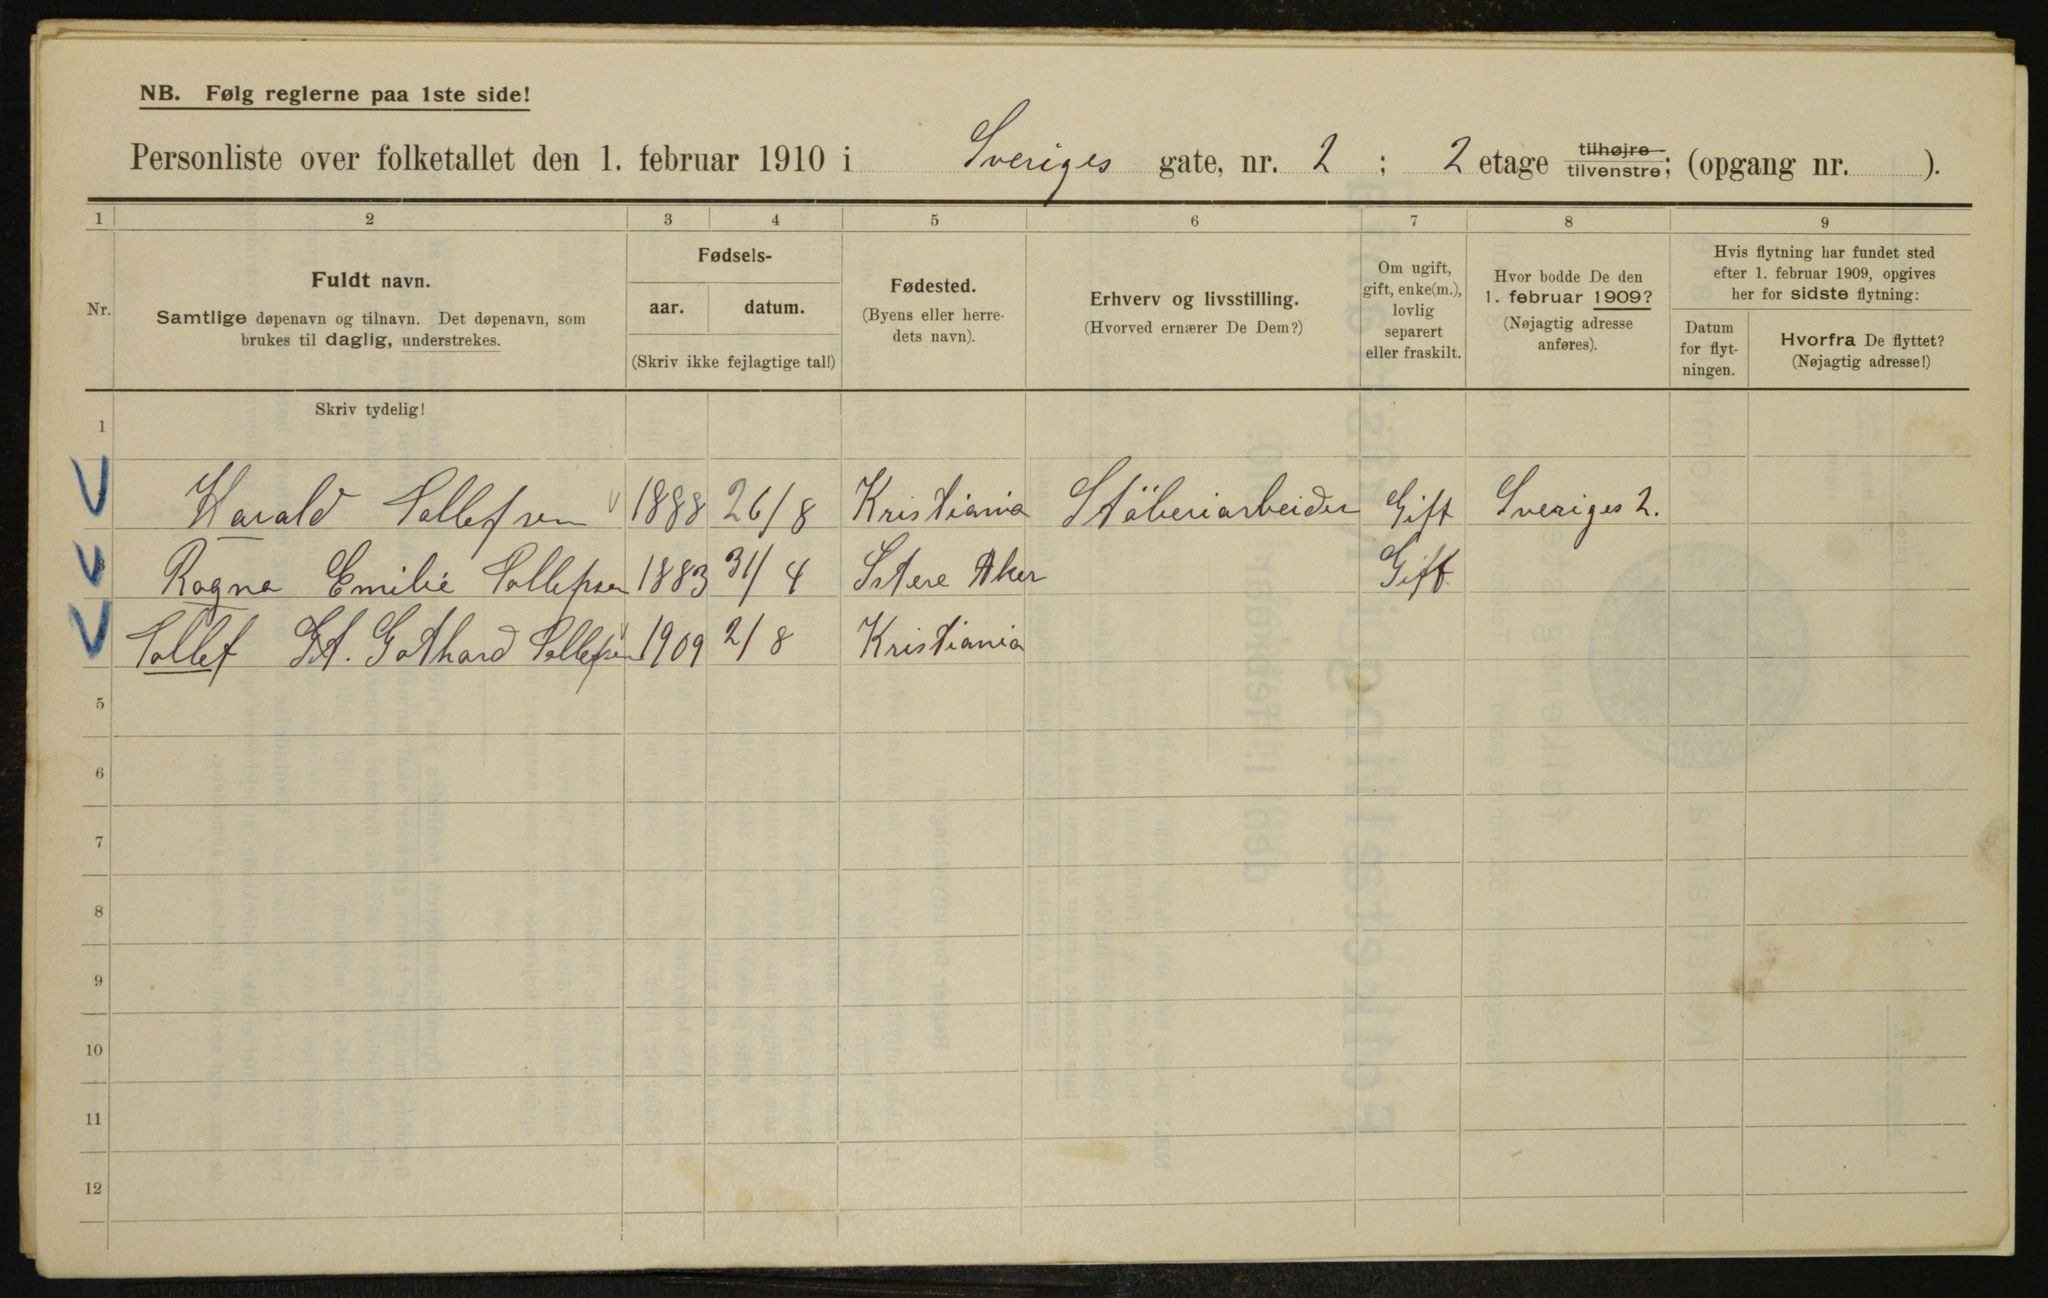 NB. Følg reglerne paa 1ste side!
Personliste over folketallet den 1. februar 1910 i Sveriges gate, nr. 2 ; 2 etage tilhøjre tilvenstre; (opgang nr. ).
1 2 3 4 5 6 7 8 9
Nr.
Fuldt navn.
Samtlige døpenavn og tilnavn. Det døpenavn, som
brukes til daglig, understrekes.
Fødsels-
aar. datum.
(Skriv ikke fejlagtige tal!)
Fødested.
(Byens eller herre-
dets navn).
Erhverv og livsstilling.
(Hvorved ernærer De Dem?)
Om ugift,
gift, enke(m.),
lovlig
separert
eller fraskilt.
Hvor bodde De den
1. februar 1909?
(Nøjagtig adresse
anføres).
Hvis flytning har fundet sted
efter 1. februar 1909, opgives
her for sidste flytning:
Datum
for flyt-
ningen.
Hvorfra De flyttet?
(Nøjagtig adresse!)
Skriv tydelig!
1
Harald Sollefsen 1888 26/8 Kristiania Stöberiarbeider Gift Sveriges 2.
3 Ragna Emilie Sollefsen 1883 31/4 Östere Aker Gift
Sollef St. Gothard Sollefsen 1909 2/8 Kristiania
5
6
7
8
9
10
11
12